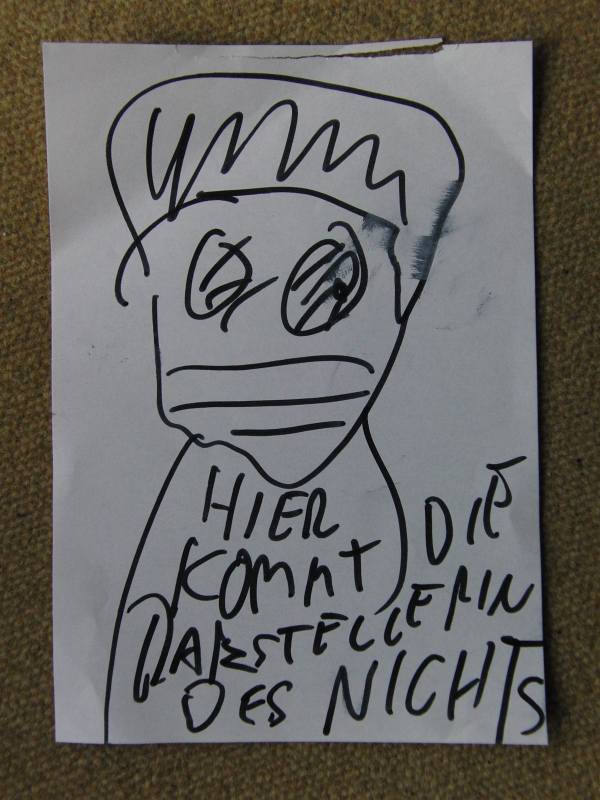 HIER
KOMMT DIE
DARSTELLERIN
DES NICHTS